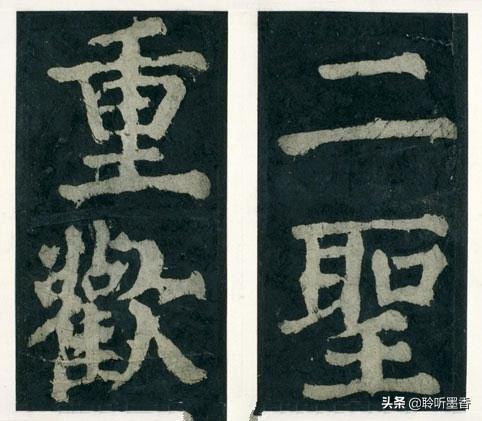 二聖
重歡
头条 @聆听墨香